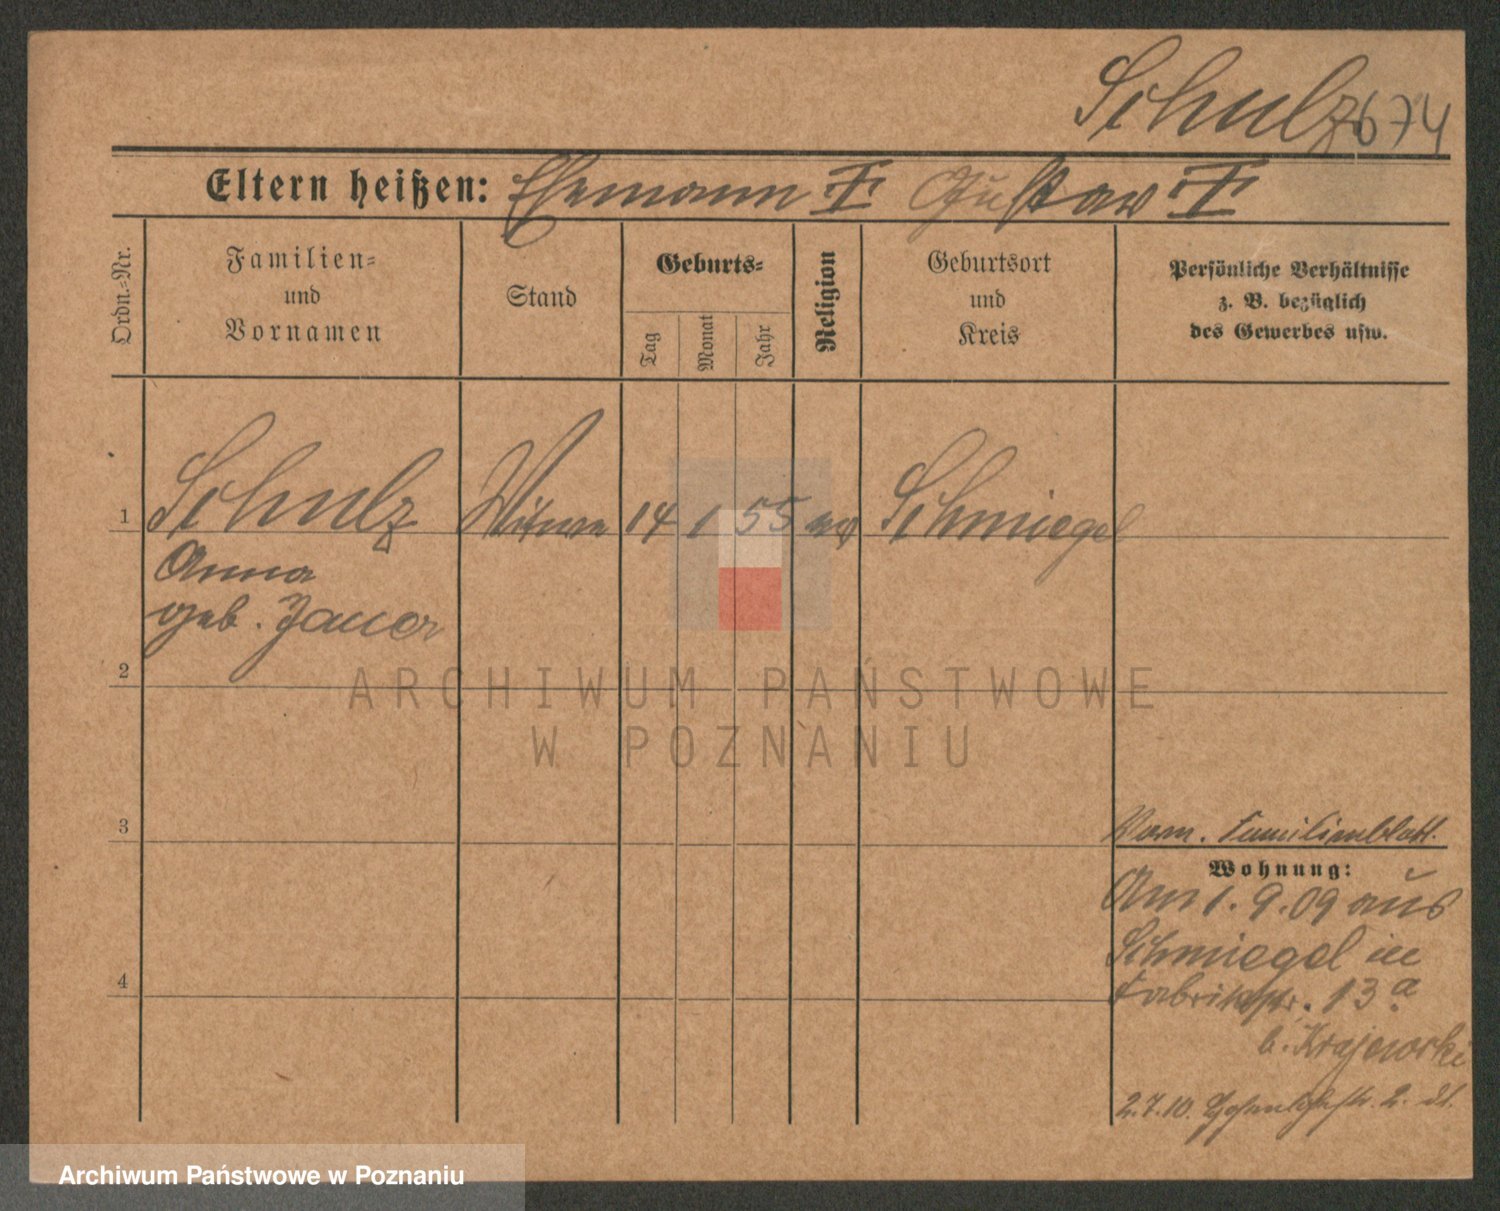 Schulz 674
Eltern heißen: Ehemann F Gustav F
Ordn.-Nr.
Familien-
und
Vornamen
Stand
Geburts-
Tag
Monat
Jahr
Religion
Geburtsort
und
Kreis
Persönliche Verhältnisse
z. B. bezüglich
des Gewerbes usw.
1 Schulz Witwe 14 1 55 ev Schmiegel
Anna
geb. Jauer
2
3
Vorn. Familienblatt.
Wohnung:
Am 1. 9. 09 aus
Schmiegel in
4
Fabrikstr. 13 a
b. Krajewski
2.7.10. 2.
ARCHIWUM PAŃSTWOWE
W POZNANIU
Archiwum Państwowe w Poznaniu